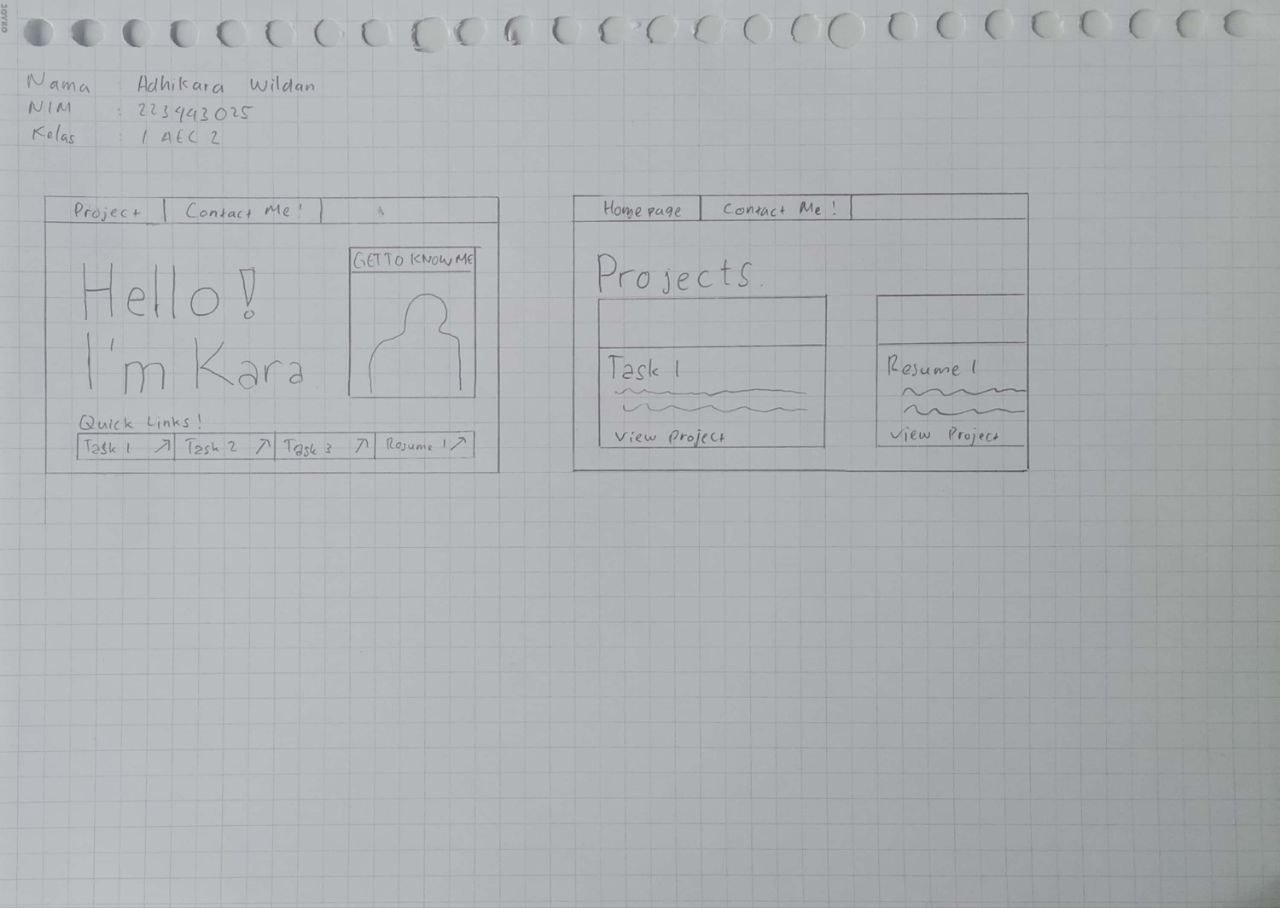 Nama : Adhikara Wildan
NIM : 223443025
Kelas : 1 AEC 2
Project
Contact Me!
Hello!
I'm Kara
GET TO KNOW ME
Quick Links!
Task 1 ↗ Task 2 ↗ Task 3 ↗ Resume 1 ↗
Homepage
Contact Me!
Projects.
Task 1
View Project
Resume 1
View Project